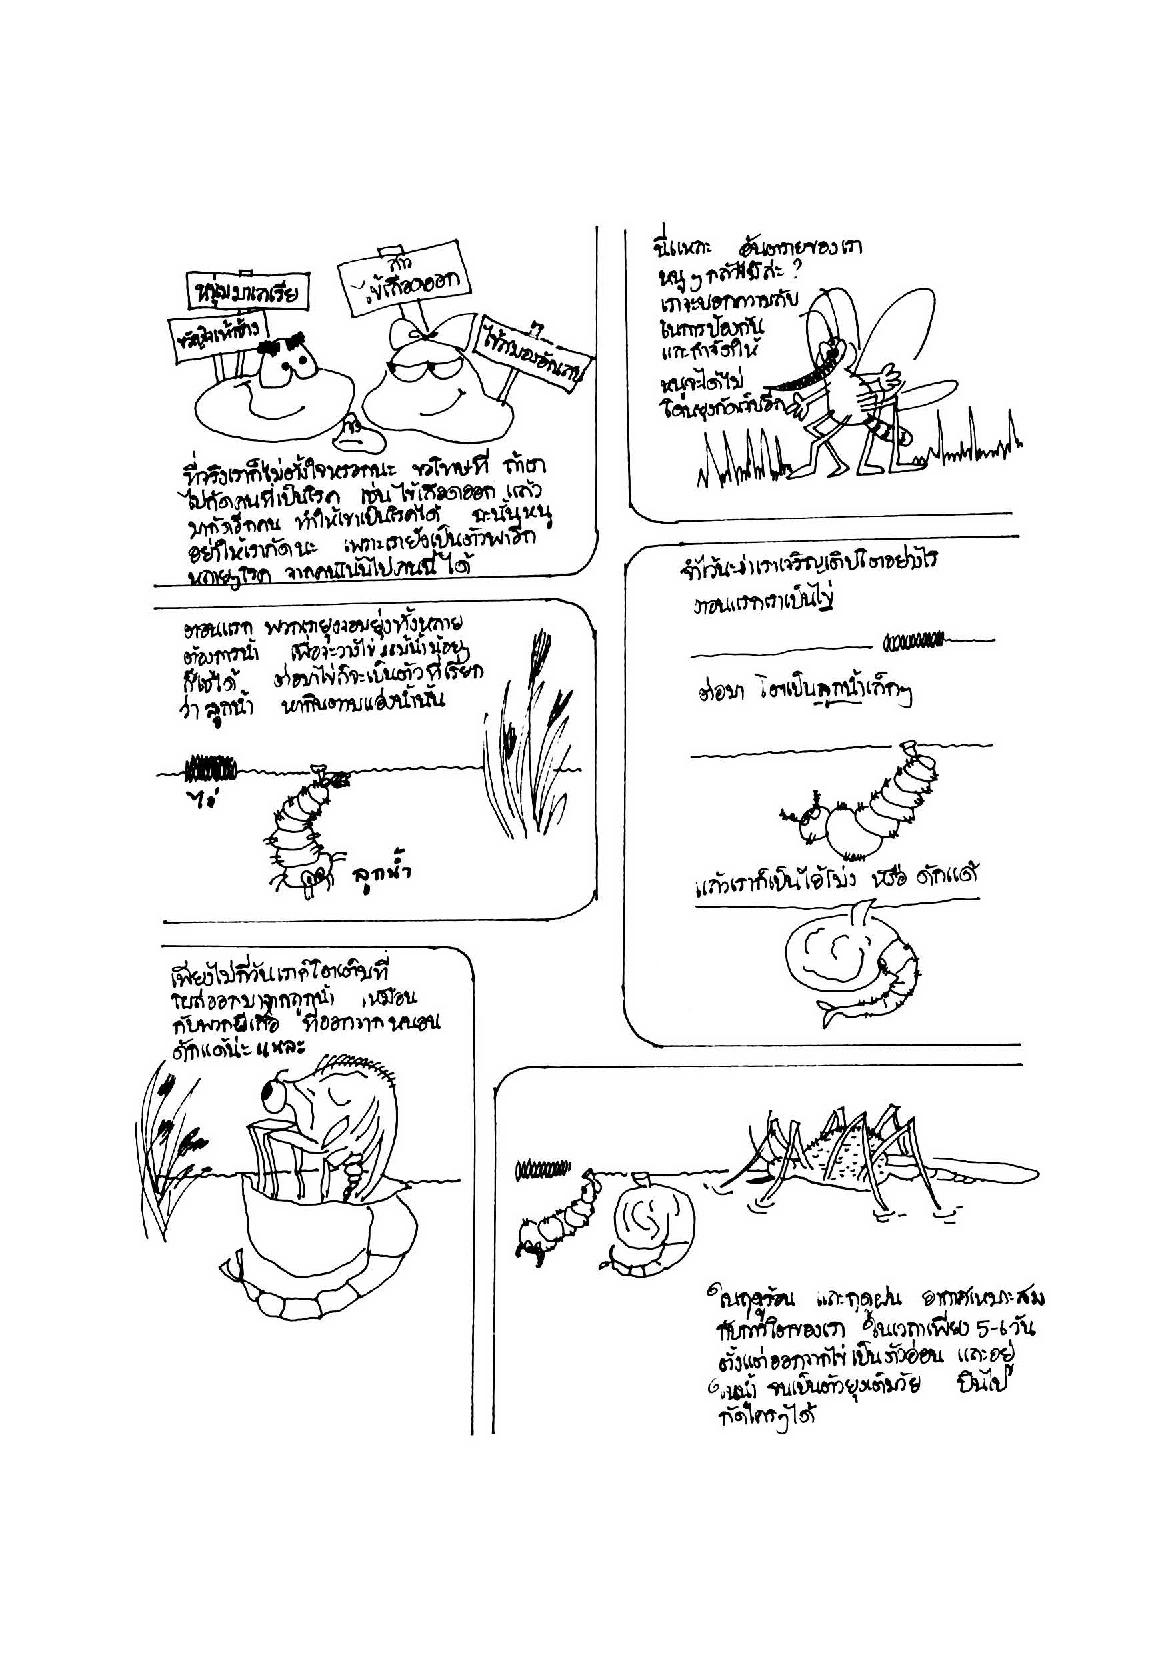 หนุ่มมาเลเรีย
ขวัญใจเท้าช้าง
สาว
ไข้เลือดออก
ไข้สมองอักเสบ
ที่จริงเราก็ไม่ตั้งใจหรอกนะ ขอโทษที ถ้าเรา
ไปกัดคนที่เป็นโรค เช่น ไข้เลือดออก แล้ว
มากัดอีกคน ทำให้เขาเป็นโรคได้ ฉะนั้นหนู
อย่าให้เรากัดนะ เพราะเรายังเป็นตัวพาอีก
หลายๆโรค จากคนโน้นไปคนนี้ได้
นี่แหละ อันตรายของเรา
หนูๆกลัวไม๊ล่ะ ?
เราจะบอกความลับ
ในการป้องกัน
และกำจัดให้
หนูจะได้ไม่
โดนยุงกัดเจ็บอีก
ตอนแรก พวกเรายุงจอมยุ่งทั้งหลาย
ต้องการน้ำ เพื่อจะวางไข่ แม้น้ำน้อยๆ
ก็ใช้ได้ ต่อมาไข่ก็จะเป็นตัวที่เรียก
ว่า ลูกน้ำ หากินตามแอ่งน้ำนั้น
ไข่
ลูกน้ำ
จำไว้นะว่าเราเจริญเติบโตอย่างไร
ตอนแรกเราเป็นไข่
ต่อมา โตเป็นลูกน้ำเล็กๆ
แล้วเราก็เป็นไอ้โม่ง หรือ ดักแด้
เพียงไม่กี่วันเราก็โตเต็มที่
โผล่ออกมาจากลูกน้ำ เหมือน
กับพวกผีเสื้อ ที่ออกจากหนอน
ดักแด้น่ะแหละ
ในฤดูร้อน และฤดูฝน อากาศเหมาะสม
กับการโตของเรา ในเวลาเพียง 5-6 วัน
ตั้งแต่ออกจากไข่ เป็นตัวอ่อน และอยู่
ในน้ำ จนเป็นตัวยุงเต็มวัย บินไป
กัดใครๆได้